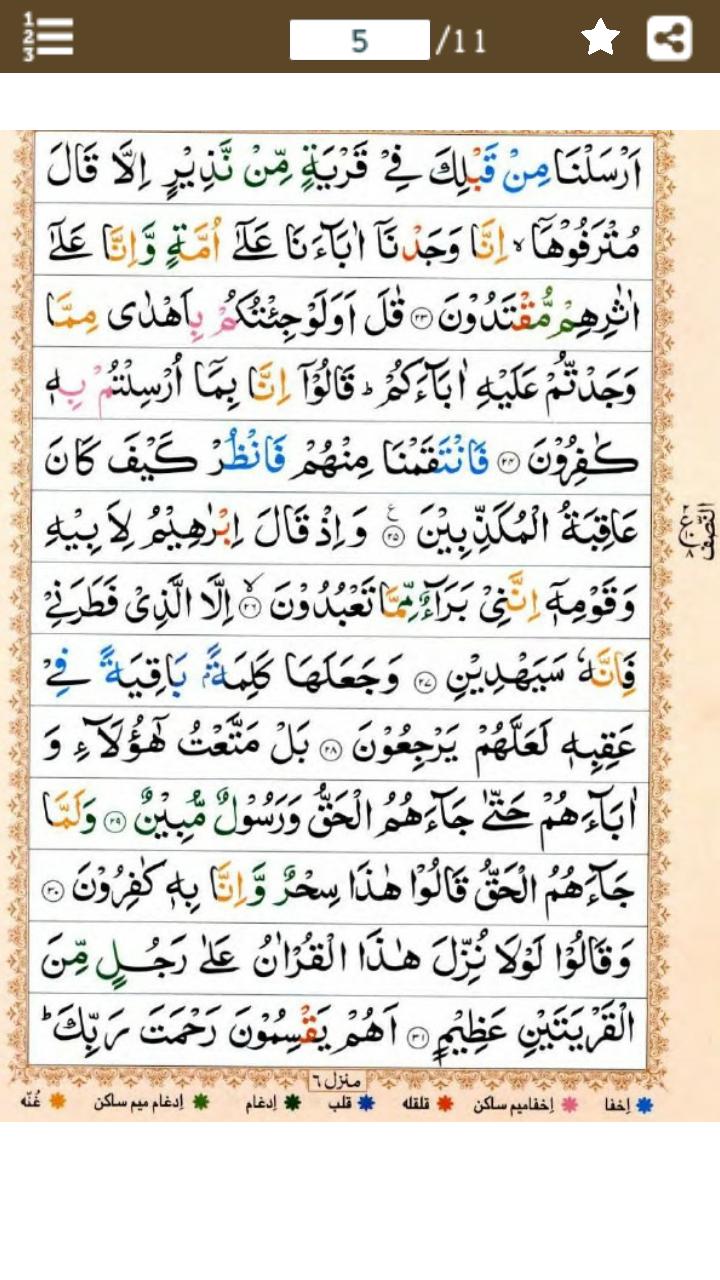 1
2
3
5 /11
اَرۡسَلۡنَا مِنۡ قَبۡلِكَ فِىۡ قَرۡيَةٍ مِّنۡ نَّذِيۡرٍ اِلَّا قَالَ
مُتۡرَفُوۡهَاۤ ۙ اِنَّا وَجَدۡنَاۤ اٰبَآءَنَا عَلٰٓى اُمَّةٍ وَّاِنَّا عَلٰٓى
اٰثٰرِهِمۡ مُّقۡتَدُوۡنَ ﴿۲۳﴾ قٰلَ اَوَلَوۡ جِئۡتُكُمۡ بِاَهۡدٰى مِمَّا
وَجَدْتُّمۡ عَلَيۡهِ اٰبَآءَكُمۡ ؕ قَالُوۡۤا اِنَّا بِمَاۤ اُرۡسِلۡتُمۡ بِهٖ
كٰفِرُوۡنَ ﴿۲۴﴾ فَانْتَقَمۡنَا مِنۡهُمۡ فَانْظُرۡ كَيۡفَ كَانَ
عَاقِبَةُ الۡمُكَذِّبِيۡنَ ﴿۲۵﴾ ع وَاِذۡ قَالَ اِبۡرٰهِيۡمُ لِاَبِيۡهِ
وَقَوۡمِهٖۤ اِنَّنِىۡ بَرَآءٌ مِّمَّا تَعۡبُدُوۡنَ ﴿۲۶﴾ ۙ اِلَّا الَّذِىۡ فَطَرَنِىۡ
فَاِنَّهٗ سَيَهۡدِيۡنِ ﴿۲۷﴾ وَجَعَلَهَا كَلِمَةًۢ بَاقِيَةً فِىۡ
عَقِبِهٖ لَعَلَّهُمۡ يَرۡجِعُوۡنَ ﴿۲۸﴾ بَلۡ مَتَّعۡتُ هٰٓؤُلَاۤءِ وَ
اٰبَآءَهُمۡ حَتّٰى جَآءَهُمُ الۡحَقُّ وَرَسُوۡلٌ مُّبِيۡنٌ ﴿۲۹﴾ وَلَمَّا
جَآءَهُمُ الۡحَقُّ قَالُوۡا هٰذَا سِحۡرٌ وَّاِنَّا بِهٖ كٰفِرُوۡنَ ﴿۳۰﴾
وَقَالُوۡا لَوۡلَا نُزِّلَ هٰذَا الۡقُرۡاٰنُ عَلٰى رَجُلٍ مِّنَ
الۡقَرۡيَتَيۡنِ عَظِيۡمٍ ﴿۳۱﴾ اَهُمۡ يَقۡسِمُوۡنَ رَحۡمَتَ رَبِّكَ ؕ
النّصف
منزل ٦
اِخفا اِخفامیم ساکن قلقله قلب اِدغام اِدغام میم ساکن غُنّه